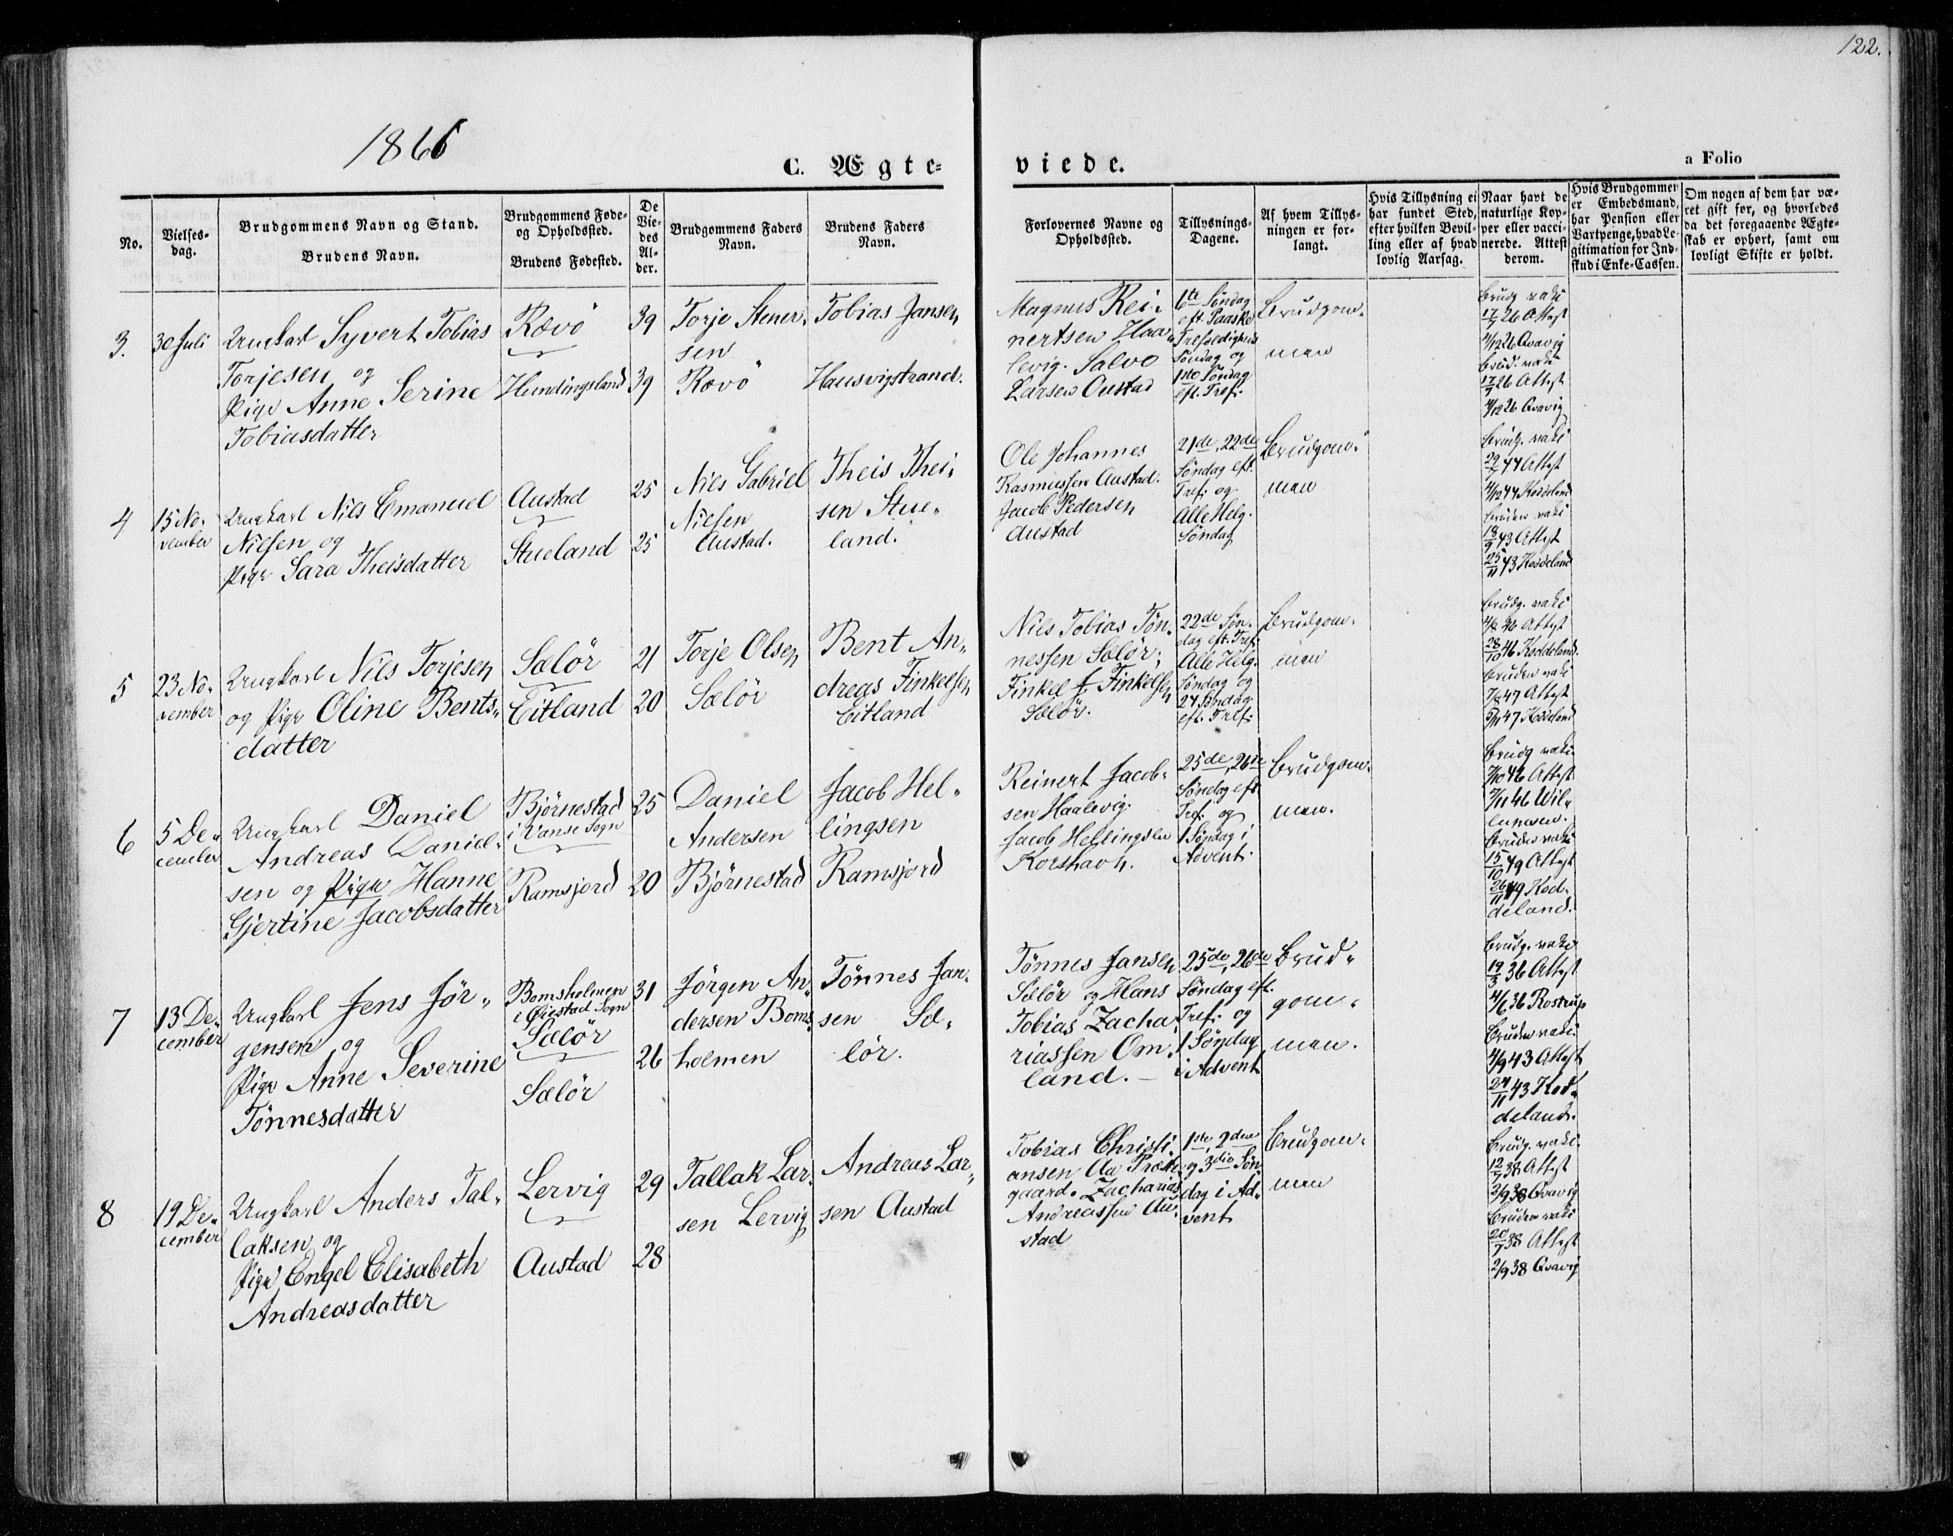 122.
1866
C. Ægte-
viede.
a Folio
No.
Vielses-
dag.
Brudgommens Navn og Stand.
Brudens Navn.
Brudgommens Føde-
og Opholdssted.
Brudens Fødested.
De
Vie-
des
Al-
der.
Brudgommens Faders
Navn.
Brudens Faders
Navn.
Forlovernes Navne og
Opholdssted.
Tillysnings-
Dagene.
Af hvem Tillys-
ningen er for-
langt.
Hvis Tillysning ei
har fundet Sted,
efter hvilken Bevil-
ling eller af hvad
lovlig Aarsag.
Naar havt de
naturlige Kop-
per eller vacci-
nerede. Attest
derom.
Hvis Brudgommen
er Embedsmand,
har Pension eller
Vartpenge, hvad Le-
gitimation for Ind-
skud i Enke-Cassen.
Om nogen af dem har væ-
ret gift før, og hvorledes
da det foregaaende Ægte-
skab er ophørt, samt om
lovligt Skifte er holdt.
3.
30 Juli
Ungkarl Syvert Tobias
Torjesen og
Pige Anne Serine
Tobiasdatter
Rævö
Hundingsland
39
39
Torje Stener-
sen
Rævö
Tobias Jansen
Hausvigstrand.
Magnus Rei-
nertsen Haa-
levig. Salve
Larsen Austad
6te Søndag
eft. Paaske
Trefoldigheds
Søndag og
1ste Søndag
eft. Tref.
Brudgom-
men
Brudg. vake
17/7 26 Attest
4/12 26 Qvavig
Brud. vake
17/7 26 Attest
4/12 26 Qvavig
4
15 No-
vember
Ungkarl Nils Emanuel
Nielsen og
Pige Sara Theisdatter
Austad
Stueland
25
25
Nils Gabriel
Nielsen
Austad.
Theis Thei-
sen Stue-
land.
Ole Johannes
Rasmussen Austad.
Jacob Pedersen
Austad
21de, 22de
Søndag eft.
Tref. og
Alle Helg.
Søndag
Brudgom-
men
Brudg. vake
44 Attest
4/12 44 Koddeland
Bruden vake
18/9 43 Attest
25/11 43 Koddeland
5
23 No-
vember
Ungkarl Nils Torjesen
og Pige Oline Bents-
datter
Sælör
Eitland
21
20
Torje Olsen
Sælör
Bent An-
dreas Finkelsen
Eitland
Nils Tobias Tøn-
nessen Sælör.
Finkel f. Finkelsen
Sælör.
22de Søn-
dag eft. Tref.
Alle Helg.
Søndag og
24 Søndag
eft. Tref.
Brudgom-
men
Brudg. vake
46 Attest
28/10 46 Koddeland.
Bruden vake
47 Attest
47 Koddeland
6
5 De-
cember
Ungkarl Daniel
Andreas Daniel-
sen og Pige Hanne
Gjertine Jacobsdatter
Bjørnestad
i Vanse Sogn
Ramsjord
25
20
Daniel
Andersen
Bjørnestad
Jacob Hel-
lingsen
Ramsjord
Reinert Jacob-
sen Haalevig.
Jacob Hellingsen
Korshavn.
25de, 26de
Søndag eft
Tref. og
1 Søndag i
Advent.
Brudgom-
men.
Brudg vake
7/10 46 Attest
7/11 46 Wil-
Bruden vake
15/10 49 Attest
26/11 49 Kod-
deland.
7
13 De-
cember
Ungkarl Jens Jør-
gensen og
Pige Anne Severine
Tønnesdatter
Bomsholmen
i Øiestad Sogn
Sælör
Sælör
31
26
Jørgen An-
dersen Boms-
holmen
Tønnes Jan-
sen Sæ-
lör.
Tønnes Jansen
Sælör og Hans
Tobias Zacha-
riassen Om-
land.
25de, 26de
Søndag eft.
Tref. og
1 Søndag
i Advent
Brud-
gom-
men.
Brudg. vake
19/3 36 Attest
4/6 36 Rostrup
Bruden vake
4/9 43 Attest
24/11 43 Kod-
deland.
8
19 De-
cember
Ungkarl Anders Tal-
laksen og
Pige Engel Elisabeth
Andreasdatter
Lervig
Austad
29
28
Tallak Lar-
sen Lervig
Andreas Lar-
sen Austad
Tobias Christi-
ansen Aa Præste-
gaard. Zacharias
Andreassen Au-
stad
1ste, 2den
og 3die Søn-
dag i Ad-
vent
Brudgom-
men
Brudg. vake.
12/7 38 Attest
2/9 38 Qvavig
Bruden vake
20/7 38 Attest
2/9 38 Qvavig